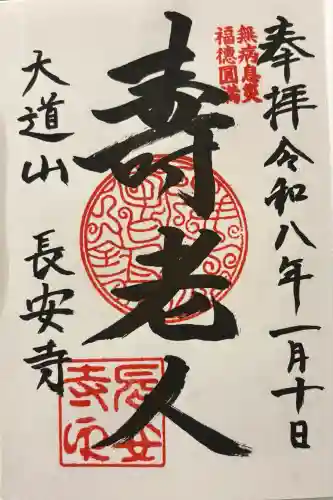 奉拝
令和八年一月十日
無病息災
福徳圓満
壽老人
大道山
長安寺